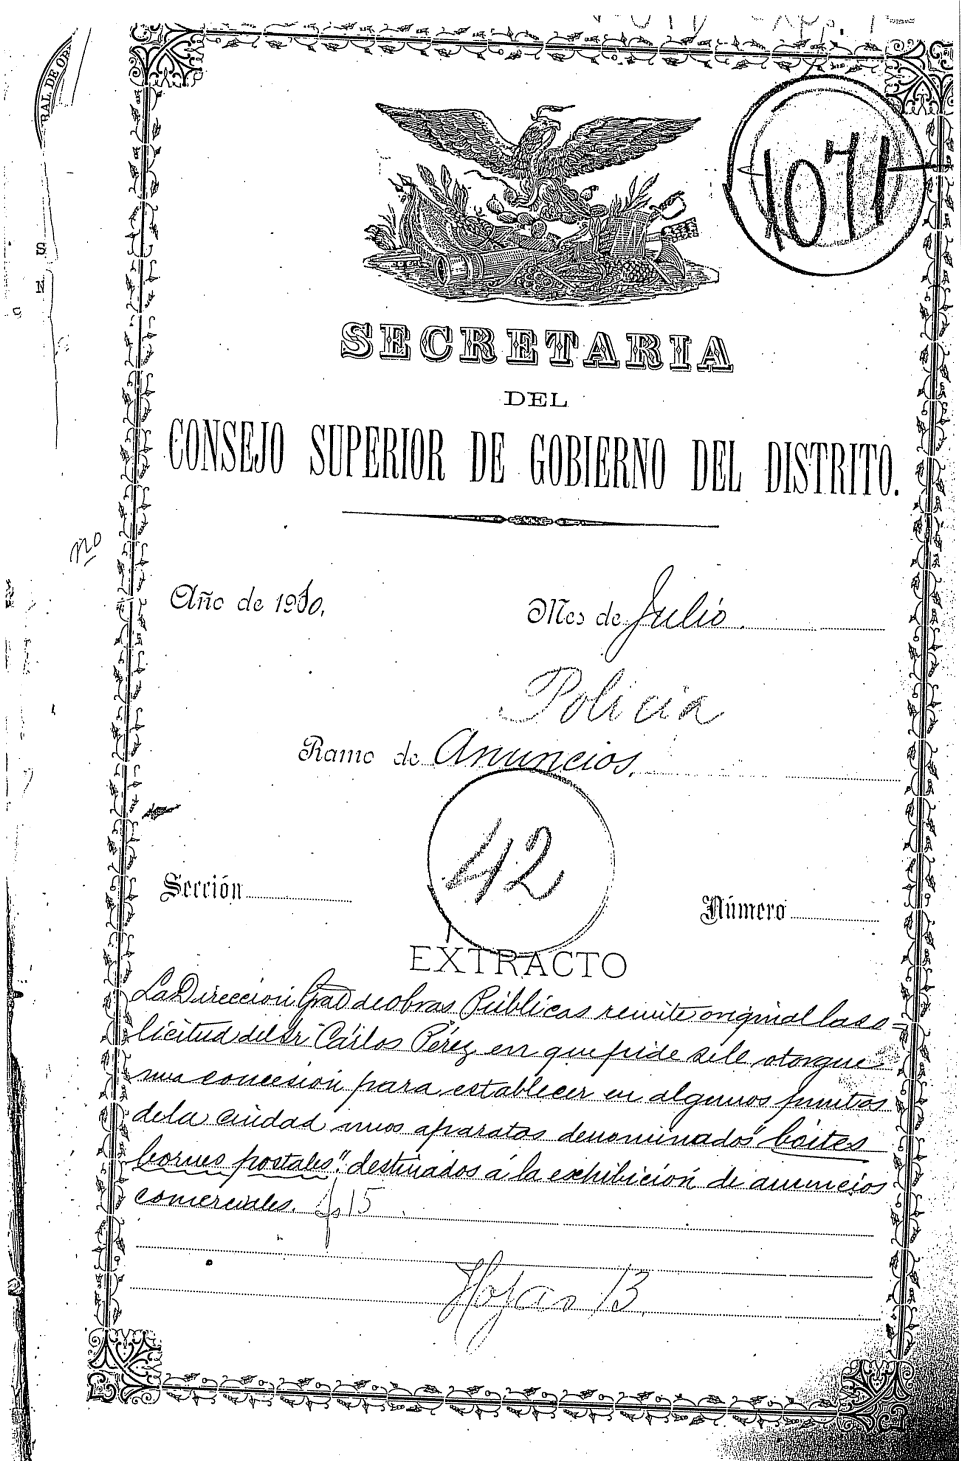 1071
SECRETARIA
DEL
CONSEJO SUPERIOR DE GOBIERNO DEL DISTRITO.
no
Año de 1910.
Mes de Julio.
Policia
Ramo de Anuncios.
42
Sección
Número
EXTRACTO
La Dirección Gral de obras Públicas remite original la so-
licitud del Sr Cárlos Pérez en que pide se le otorgue
una concesión para establecer en algunos puntos
de la ciudad unos aparatos denominados "boites
bornes postales" destinados á la exhibición de anuncios
comerciales. fs 15.
Hojas 13
RAL DE OB
S
N